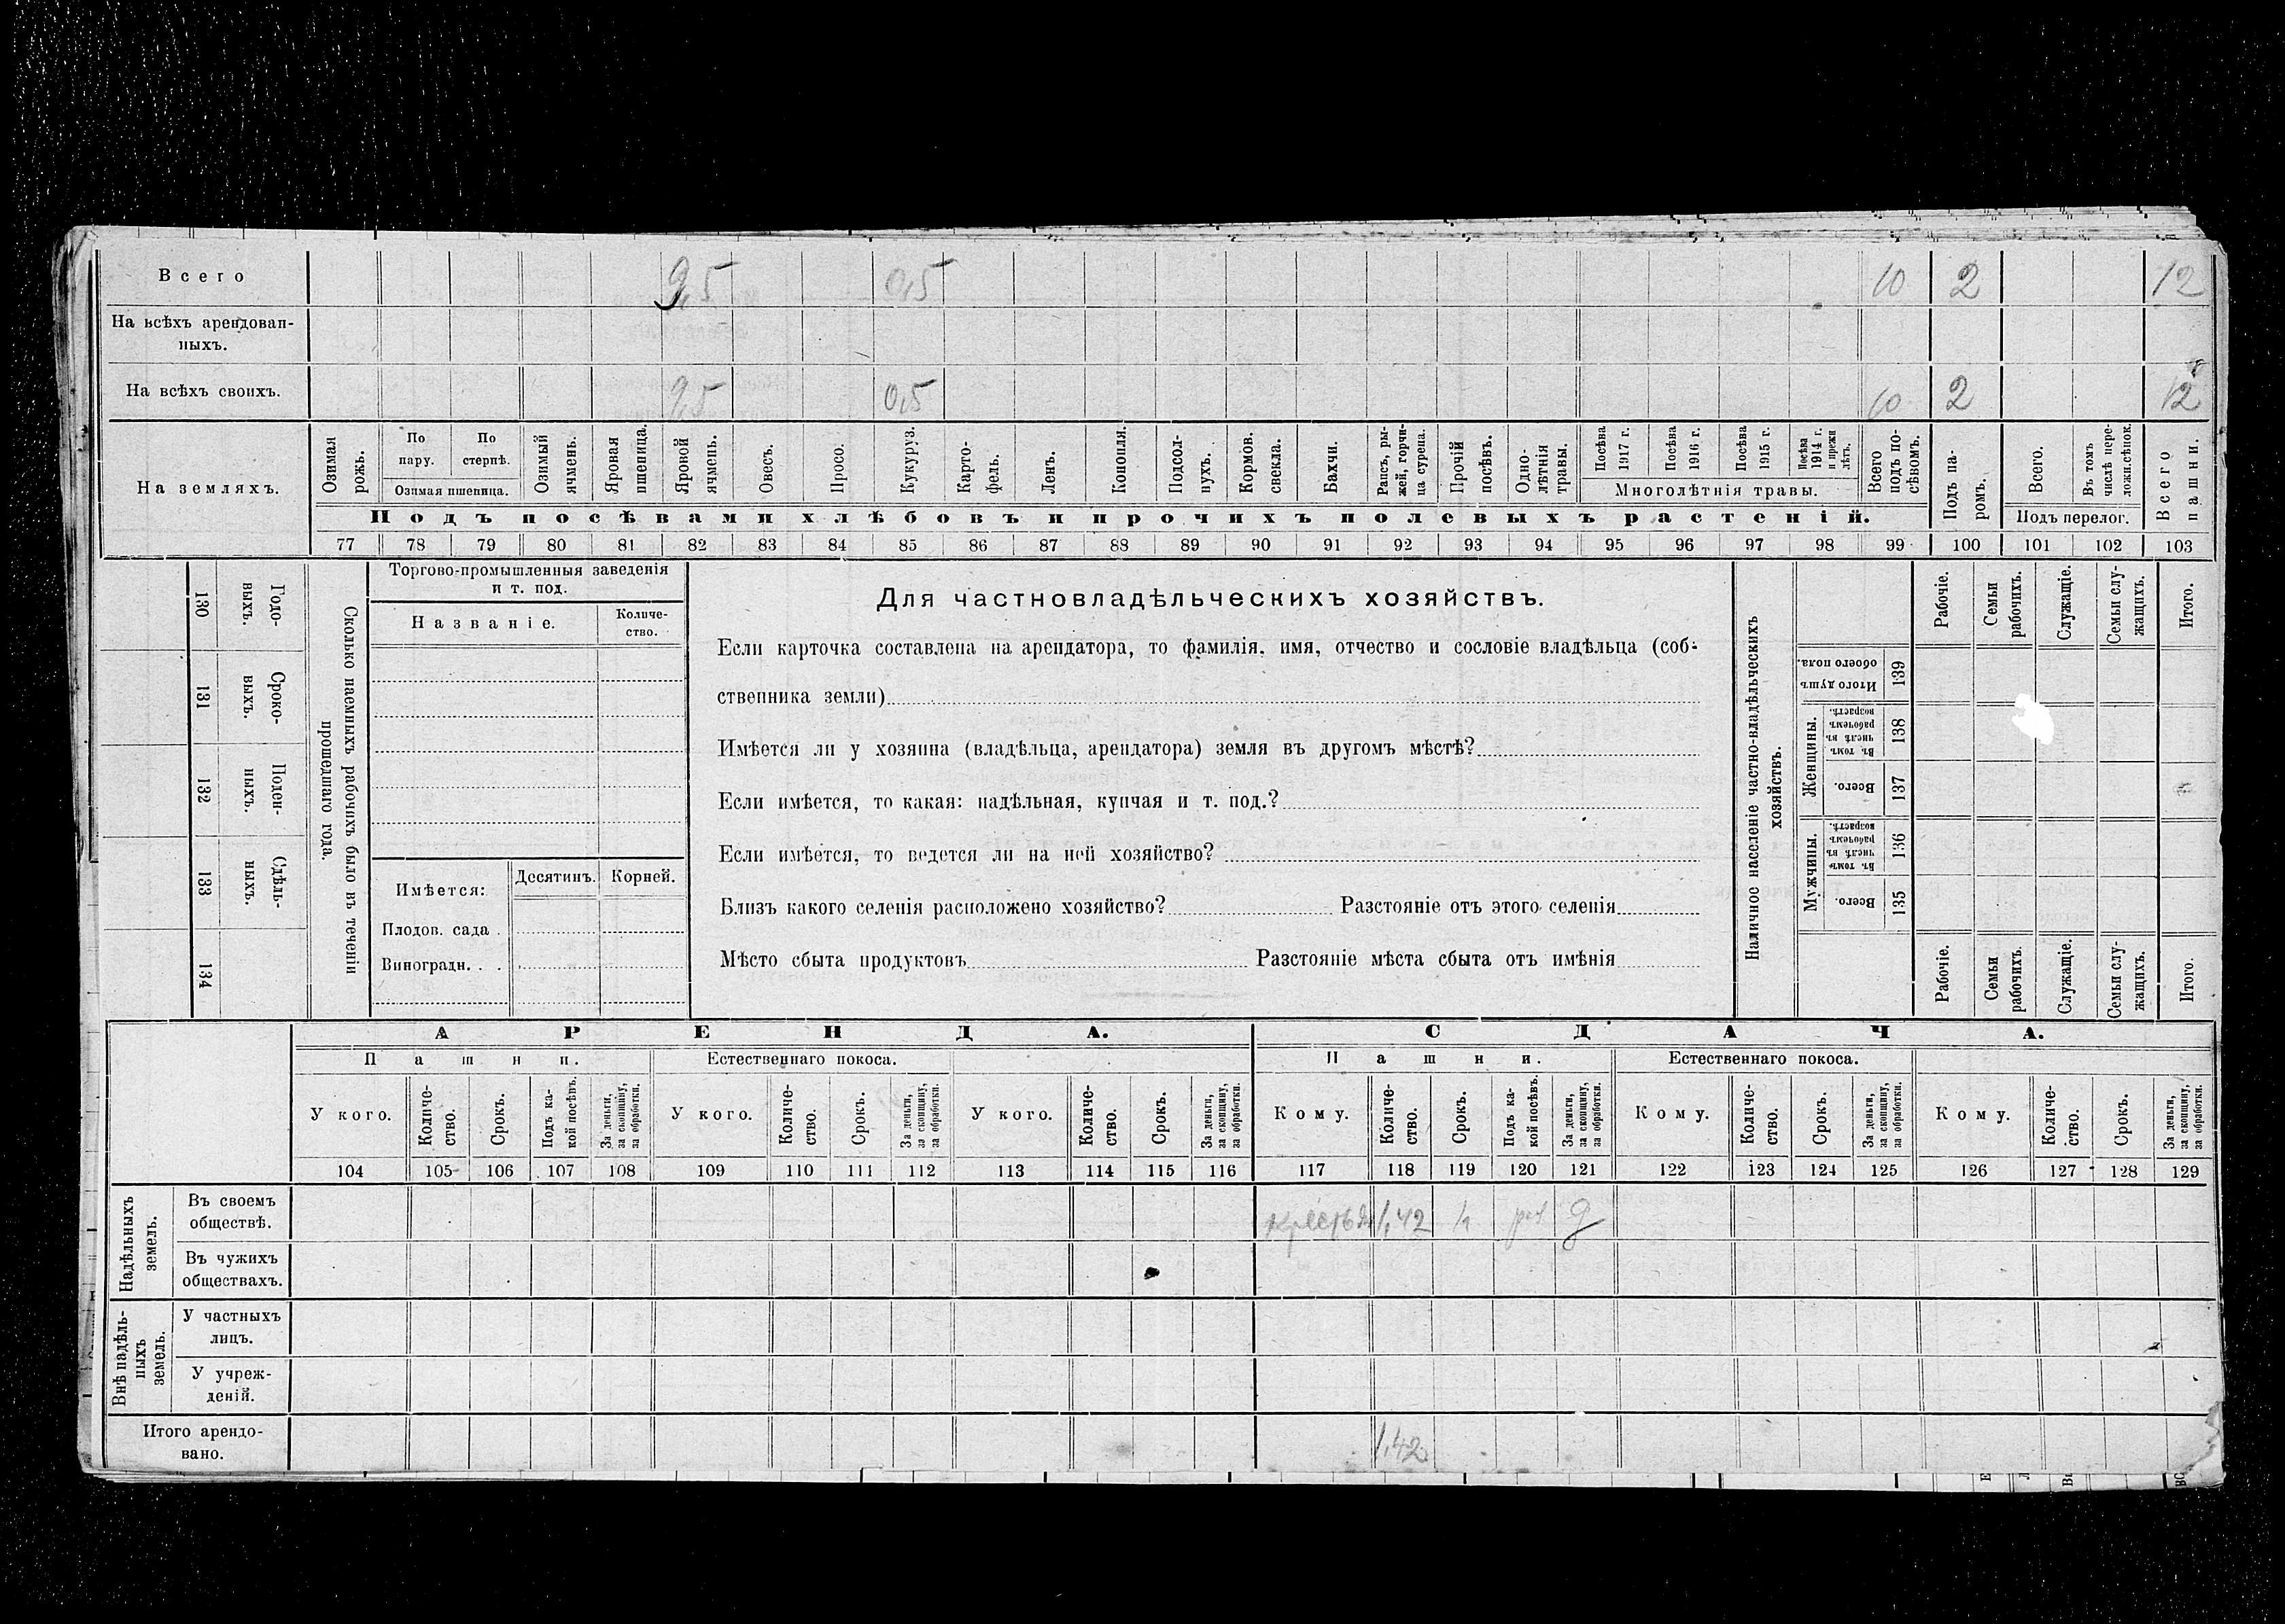 Всего 9,5 0,5 10 2 12
На всѣхъ арендован-
ныхъ.
На всѣхъ своихъ. 9,5 0,5 10 2 12
На земляхъ.
Озимая рожь.
По пару.
По стернѣ.
Озимая пшеница.
Озимый ячмень.
Яровая пшеница.
Яровой ячмень.
Овесъ.
Просо.
Кукуруз.
Карто-
фель.
Ленъ.
Конопля.
Подсол-
нухъ.
Кормов.
свекла.
Бахчи.
Рапсъ, ры-
жей, горчи-
ца сурепа.
Прочій
посѣвъ.
Одно-
лѣтнія
травы.
Посѣва
1917 г.
Посѣва
1916 г.
Посѣва
1915 г.
Посѣва
1914 г.
и прежн
лѣтъ.
Многолѣтнія травы.
Всего
подъ по-
сѣвомъ.
Подъ па-
ромъ.
Всего.
Въ томъ
числѣ пере-
ложн. сѣнок.
Подъ перелог.
Всего
пашни.
Подъ посѣвами хлѣбовъ и прочихъ полевыхъ растеній.
77 78 79 80 81 82 83 84 85 86 87 88 89 90 91 92 93 94 95 96 97 98 99 100 101 102 103
Сколько наемныхъ рабочихъ было въ теченіи
прошедшаго года.
Годо-
выхъ.
130
Сроко-
выхъ.
131
Поден-
ныхъ.
132
Сдѣль-
ныхъ.
133
134
Торгово-промышленныя заведенія
и т. под.
Названіе.
Количе-
ство.
Имѣется:
Десятинъ. Корней.
Плодов. сада .
Виноградн. . .
Для частновладѣльческихъ хозяйствъ.
Если карточка составлена на арендатора, то фамилія, имя, отчество и сословіе владѣльца (соб-
ственника земли)
Имѣется ли у хозяина (владѣльца, арендатора) земля въ другомъ мѣстѣ?
Если имѣется, то какая: надѣльная, купчая и т. под.?
Если имѣется, то ведется ли на ней хозяйство?
Близъ какого селенія расположено хозяйство? Разстояніе отъ этого селенія
Мѣсто сбыта продуктовъ Разстояніе мѣста сбыта отъ имѣнія
Наличное населеніе частно-владѣльческихъ
хозяйствъ.
Итого душъ
обоего пола.
139
Женщины.
Въ томъ
числѣ въ
рабочемъ
возрастѣ.
138
Всего.
137
Мужчины.
Въ томъ
числѣ въ
рабочемъ
возрастѣ.
136
Всего.
135
Рабочіе.
Семьи
рабочихъ.
Служащіе.
Семьи слу-
жащихъ.
Итого.
Рабочіе.
Семьи
рабочихъ.
Служащіе.
Семьи слу-
жащихъ.
Итого.
АРЕНДА. СДАЧА.
Пашни. Естественнаго покоса. Пашни. Естественнаго покоса.
У кого.
Количе-
ство.
Срокъ.
Подъ ка-
кой посѣвъ.
За деньги,
за скопщину,
за обработки.
У кого.
Количе-
ство.
Срокъ.
За деньги,
за скопщину,
за обработки.
У кого.
Количе-
ство.
Срокъ.
За деньги,
за скопщину,
за обработки.
Кому.
Количе-
ство.
Срокъ.
Подъ ка-
кой посѣвъ.
За деньги,
за скопщину,
за обработки.
Кому.
Количе-
ство.
Срокъ.
За деньги,
за скопщину,
за обработки.
Кому.
Количе-
ство.
Срокъ.
За деньги,
за скопщину,
за обработки.
104 105 106 107 108 109 110 111 112 113 114 115 116 117 118 119 120 121 122 123 124 125 126 127 128 129
Надѣльныхъ
земель.
Въ своемъ
обществѣ. 1,42
Въ чужихъ
обществахъ.
Внѣ надѣль-
ныхъ
земель.
У частныхъ
лицъ.
У учреж-
деній.
Итого арендо-
вано. 1,42